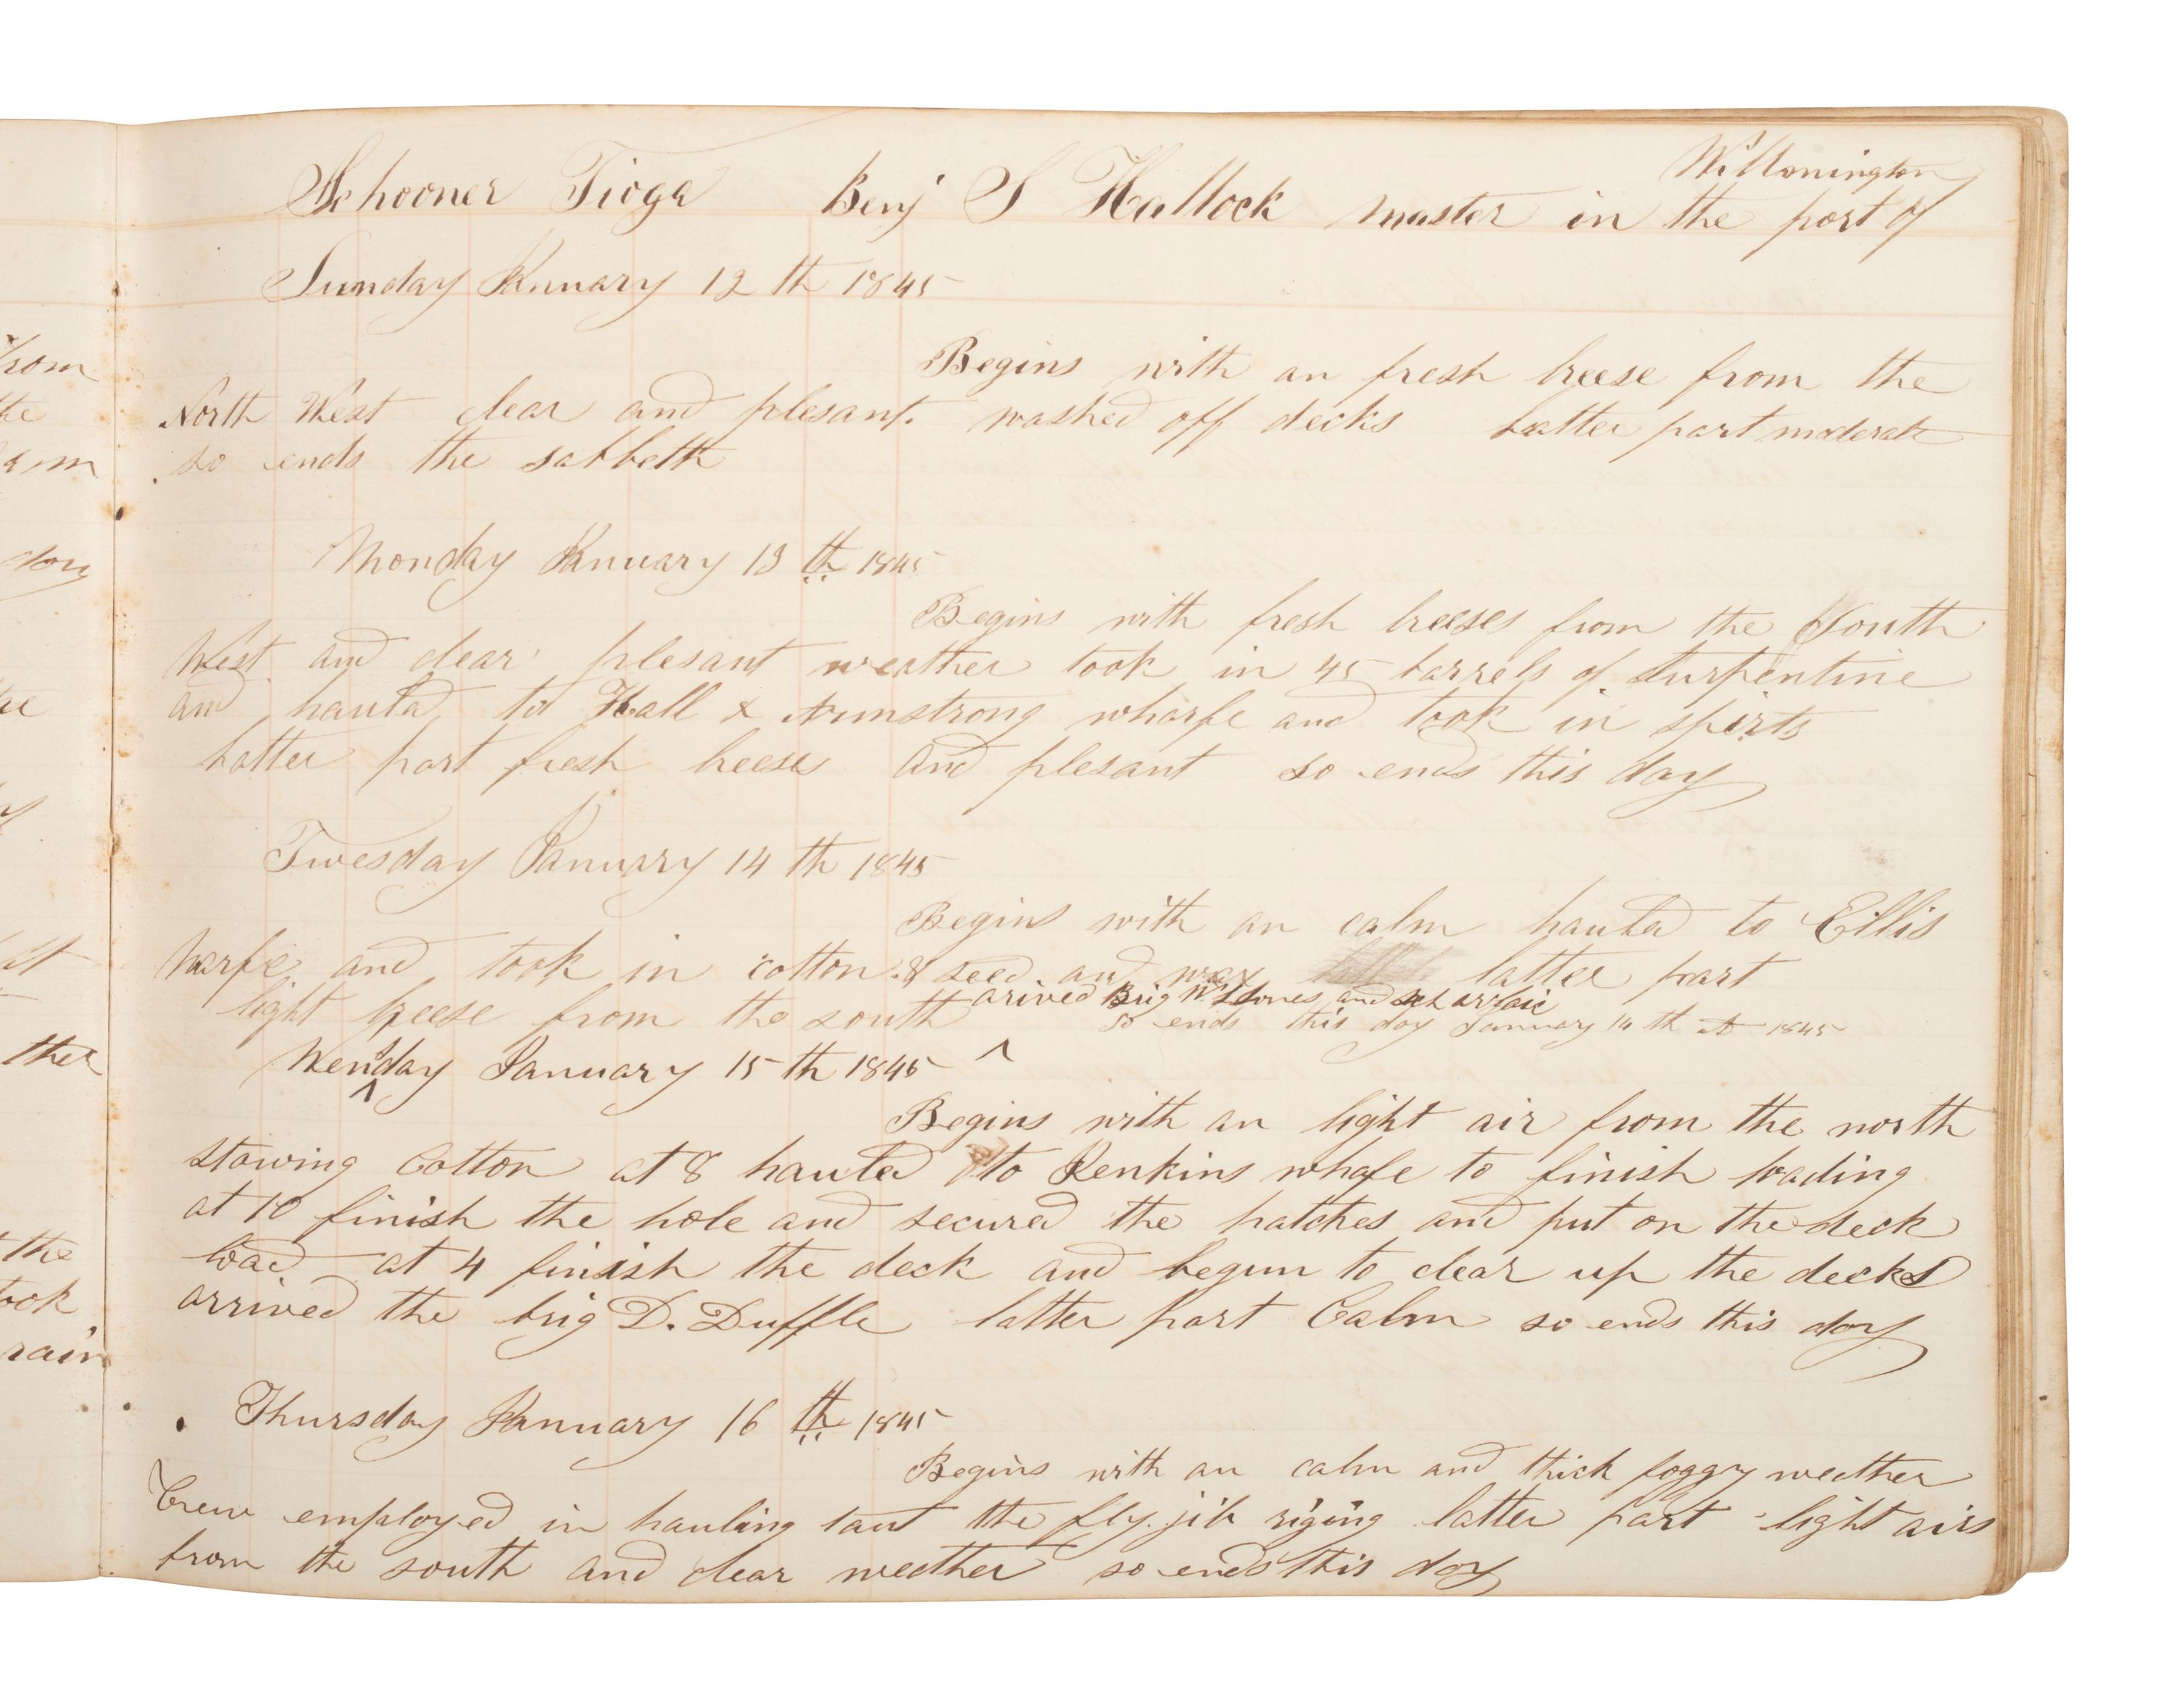 Willmington
Schooner Tioga Benj S Hallock master in the port of
Sunday January 12 th 1845
Begins with an fresh breese from the
North West clear and plesant. washed off decks Latter part moderate
so ends the sabbeth
Monday January 13 th 1845
Begins with fresh breeses from the South
West and clear plesant weather took in 45 barrels of turpentine
and hauld to Hall & Armstrong wharfe and took in spirts
Latter part fresh breeses and plesant so ends this day
Twesday January 14 th 1845
Begins with an calm hauld to Ellis
Warfe and took in cotton & seed and wax latter part
arived Brig W and sch
light breese from the south so ends this day January 14 th 1845
Wensday January 15 th 1845 ^
Begins with an light air from the north
stowing Cotton at 8 hauled to Jenkins whafe to finish loading
at 10 finish the hole and secured the hatches and put on the deck
load at 4 finish the deck and begun to clear up the decks
arrived the brig D. Duffle latter part Calm so ends this day
Thursday January 16 th 1845
Begins with an calm and thick foggy weether
Crew employed in hauling taut the fly. jib riging latter part light airs
from the south and clear weether so ends this day
rom
the
dory
ther
the
took
rain